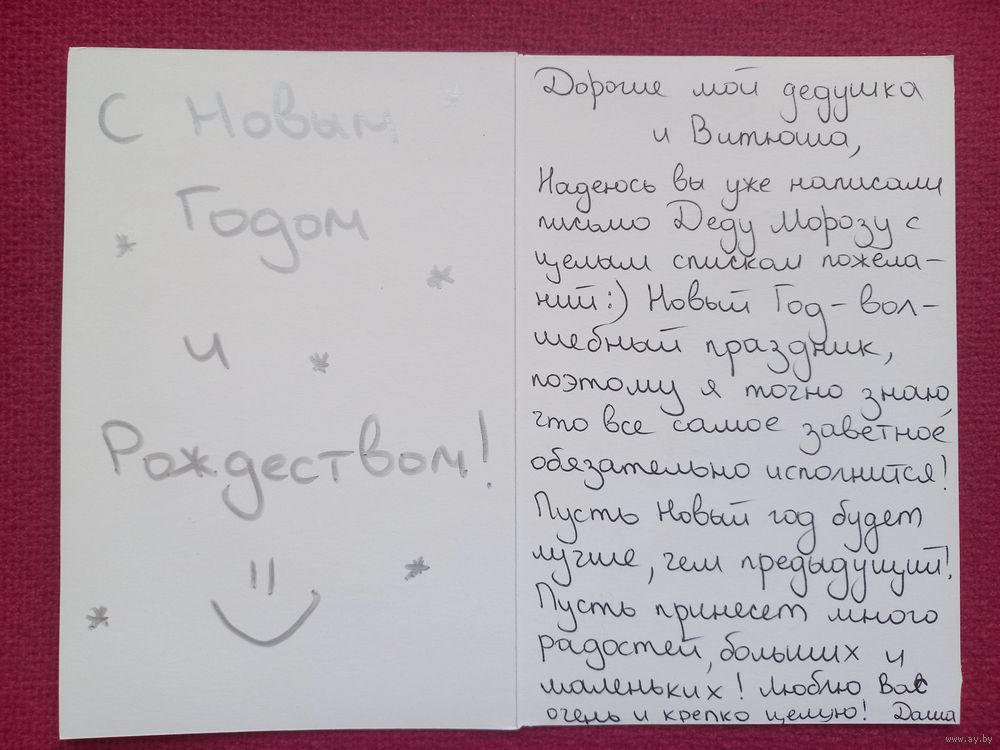 С Новым
Годом
и
Рождеством!
Дорогие мой дедушка
и Витюша,
Надеюсь вы уже написали
письмо Деду Морозу с
целым списком пожела-
ний:) Новый Год - вол-
шебный праздник,
поэтому я точно знаю
что все самое заветное
обязательно исполнится!
Пусть Новый год будет
лучше, чем предыдущий!
Пусть принесет много
радостей, больших и
маленьких! Люблю Вас
очень и крепко целую! Даша
www.ay.by